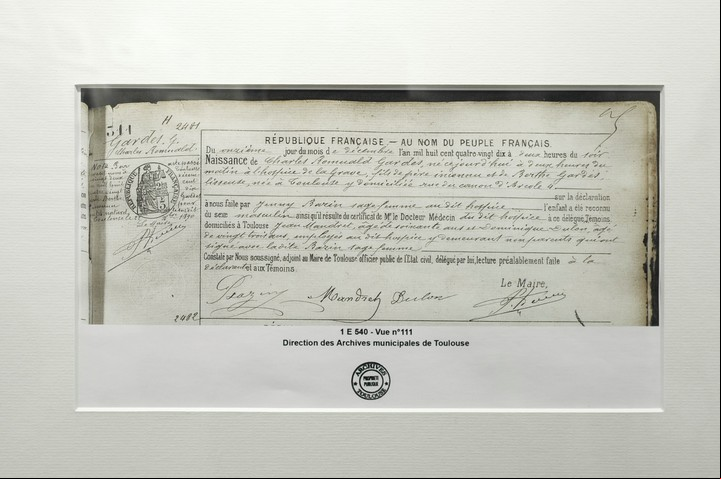 2481
Gardes. G.
Charles Romuald.
RÉPUBLIQUE FRANÇAISE. — AU NOM DU PEUPLE FRANÇAIS.
Du onzième jour du mois de décembre l'an mil huit cent quatre-vingt dix à deux heures du soir
Naissance de Charles Romuald Gardes, né ce jourd'hui à deux heures du
matin à l'hospice de la Grave, fils de père inconnu et de Berthe Gardes,
lisseuse, née à Toulouse y domiciliée rue du canon d'Arcole 4
sur la déclaration
à nous faite par Jenny Bazin sage femme au dit hospice l'enfant a été reconnu
du sexe masculin ainsi qu'il résulte du certificat de Mr le Docteur Médecin du dit hospice à ce délégué, Témoins,
domiciliés à Toulouse Jean Mandret, âgé de soixante ans et Dominique Dulon, âgé
de vingt trois ans, employés au dit hospice y demeurant non parents qui ont
signé avec la dite Bazin sage femme
Constaté par Nous soussigné, adjoint au Maire de Toulouse officier public de l'Etat civil, délégué par lui, lecture préalablement faite à la
déclarante et aux Témoins.
Le Maire,
Bazin Mandret Dulon
2482
1 E 540 - Vue n°111
Direction des Archives municipales de Toulouse
ARCHIVES
PROPRIÉTÉ
PUBLIQUE
TOULOUSE